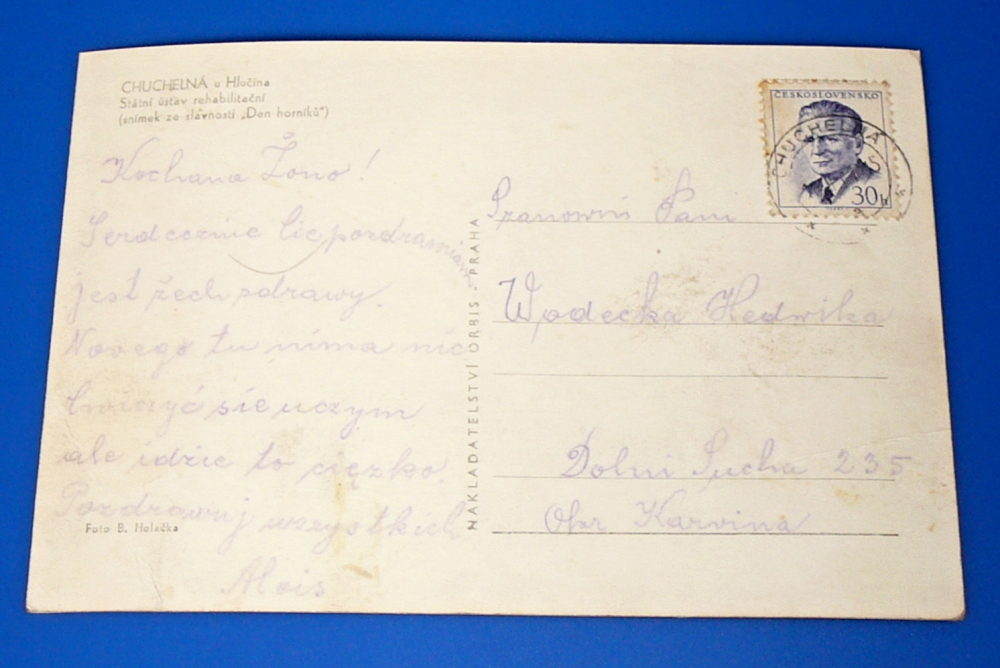 CHUCHELNÁ u Hlučína
Státní ústav rehabilitační
(snímek ze slavnosti „Den horníků")
Kochana Żono!
Serdecznie Cie pozdrawiam
jest żech zdrawy.
Novego tu nima nic
ćwiczyć sie uczym
ale idzie to ciężko.
Pozdrawuj wszystkich
Alois
Foto B. Holačka
NAKLADATELSTVÍ ORBIS - PRAHA
ČESKOSLOVENSKO
30h
CHUCHELNÁ
Szanowni Pani
Wodecka Hedwika
Dolni Sucha 235
Okr Karvina